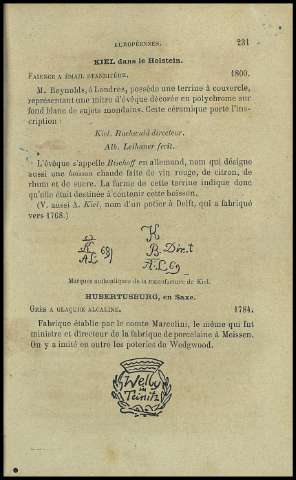 EUROPÉENNES. 231
KIEL dans le Holstein.
FAÏENCE A ÉMAIL STANNIFÈRE. 1800.
M. Reynolds, à Londres, possède une terrine à couvercle,
représentant une mitre d'évêque décorée en polychrome sur
fond blanc de sujets mondains. Cette céramique porte l'ins-
cription :
Kiel. directeur.
Alb. Leihamer fecit.
L'évêque s'appelle Bischoff en allemand, nom qui désigne
aussi une boisson chaude faite de vin rouge, de citron, de
rhum et de sucre. La forme de cette terrine indique donc
qu'elle était destinée à contenir cette boisson.
(V. aussi A. Kiel, nom d'un potier à Delft, qui a fabriqué
vers 1768.)
K K
A.L. 69 B. Dirct
A.L. 69
Marques authentiques de la manufacture de Kiel.
HUBERTUSBURG, en Saxe.
GRÈS A GLAÇURE ALCALINE. 1784.
Fabrique établie par le comte Marcolini, le même qui fut
ministre et directeur de la fabrique de porcelaine à Meissen.
On y a imité en outre les poteries de Wedgwood.
Welly
in
Teinitz